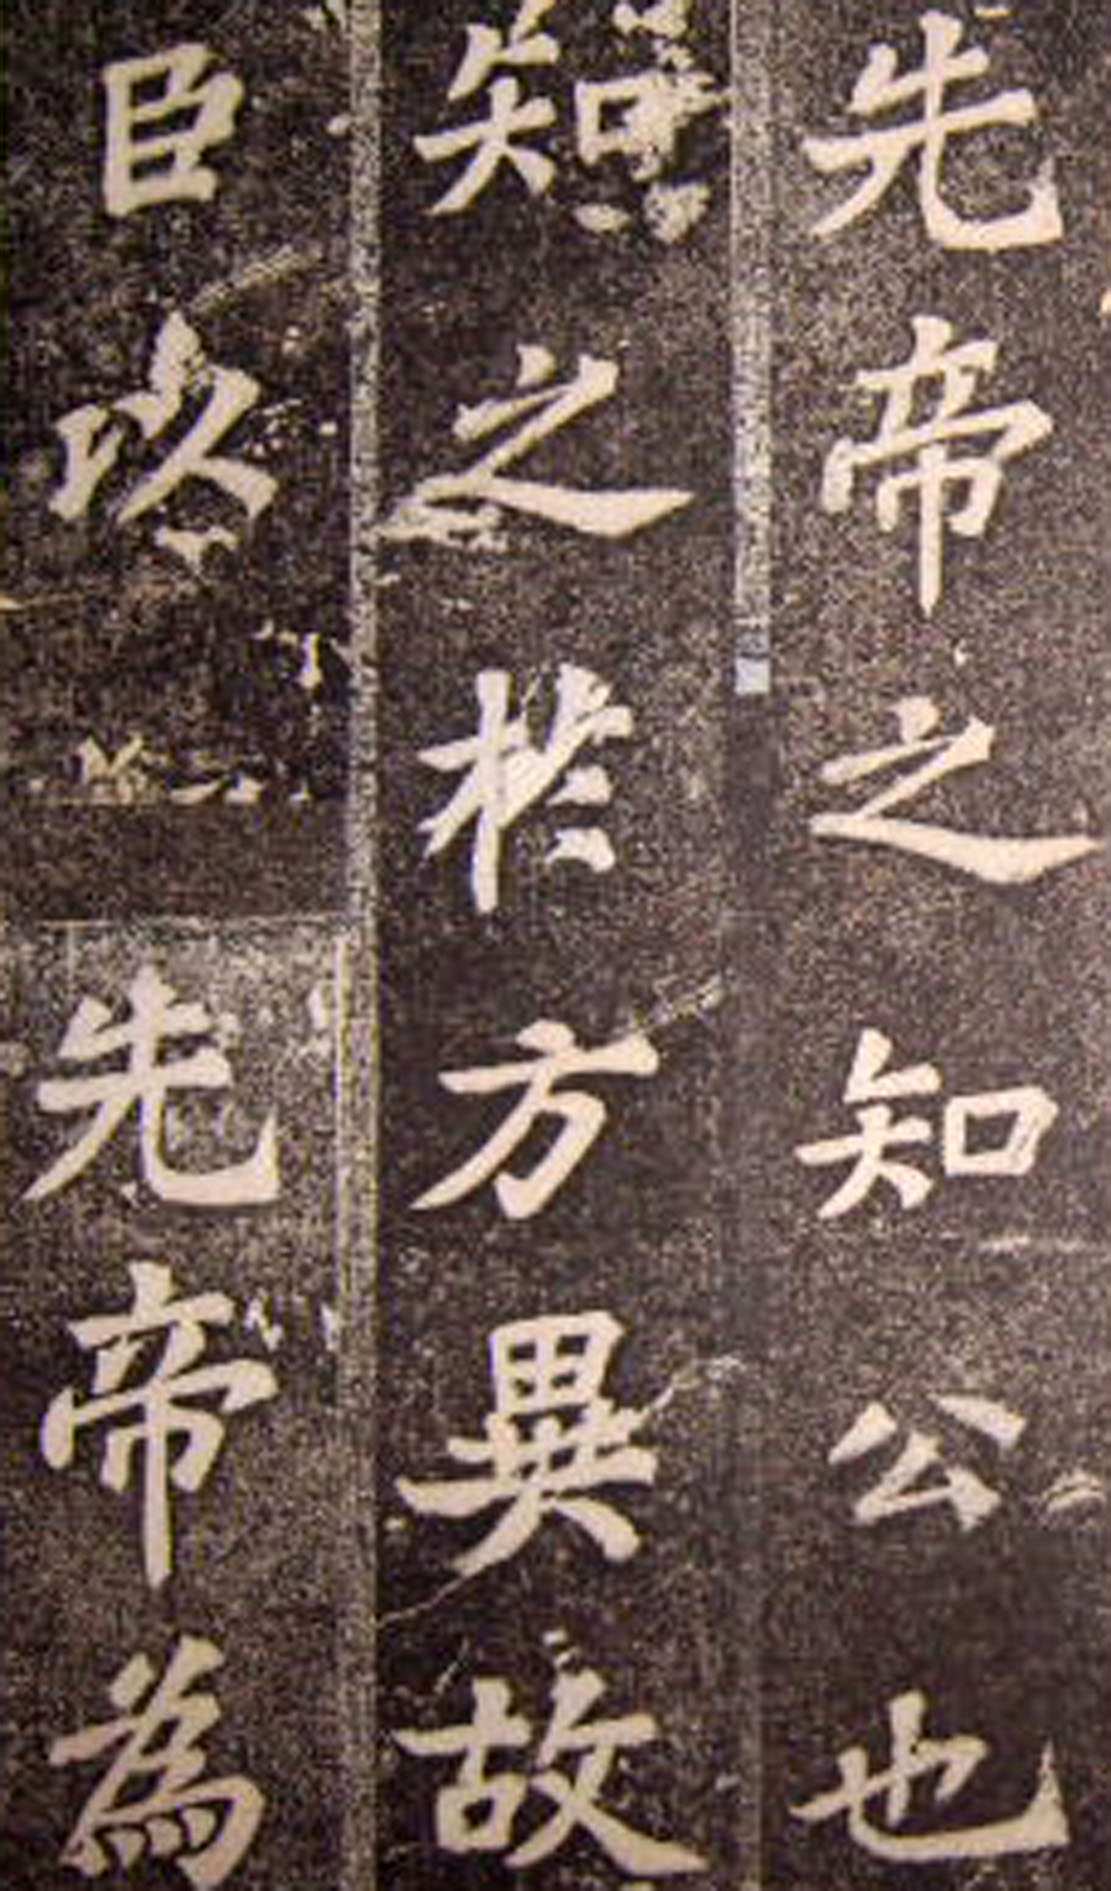 先帝之知公也
知之扵方異故
臣以先帝為